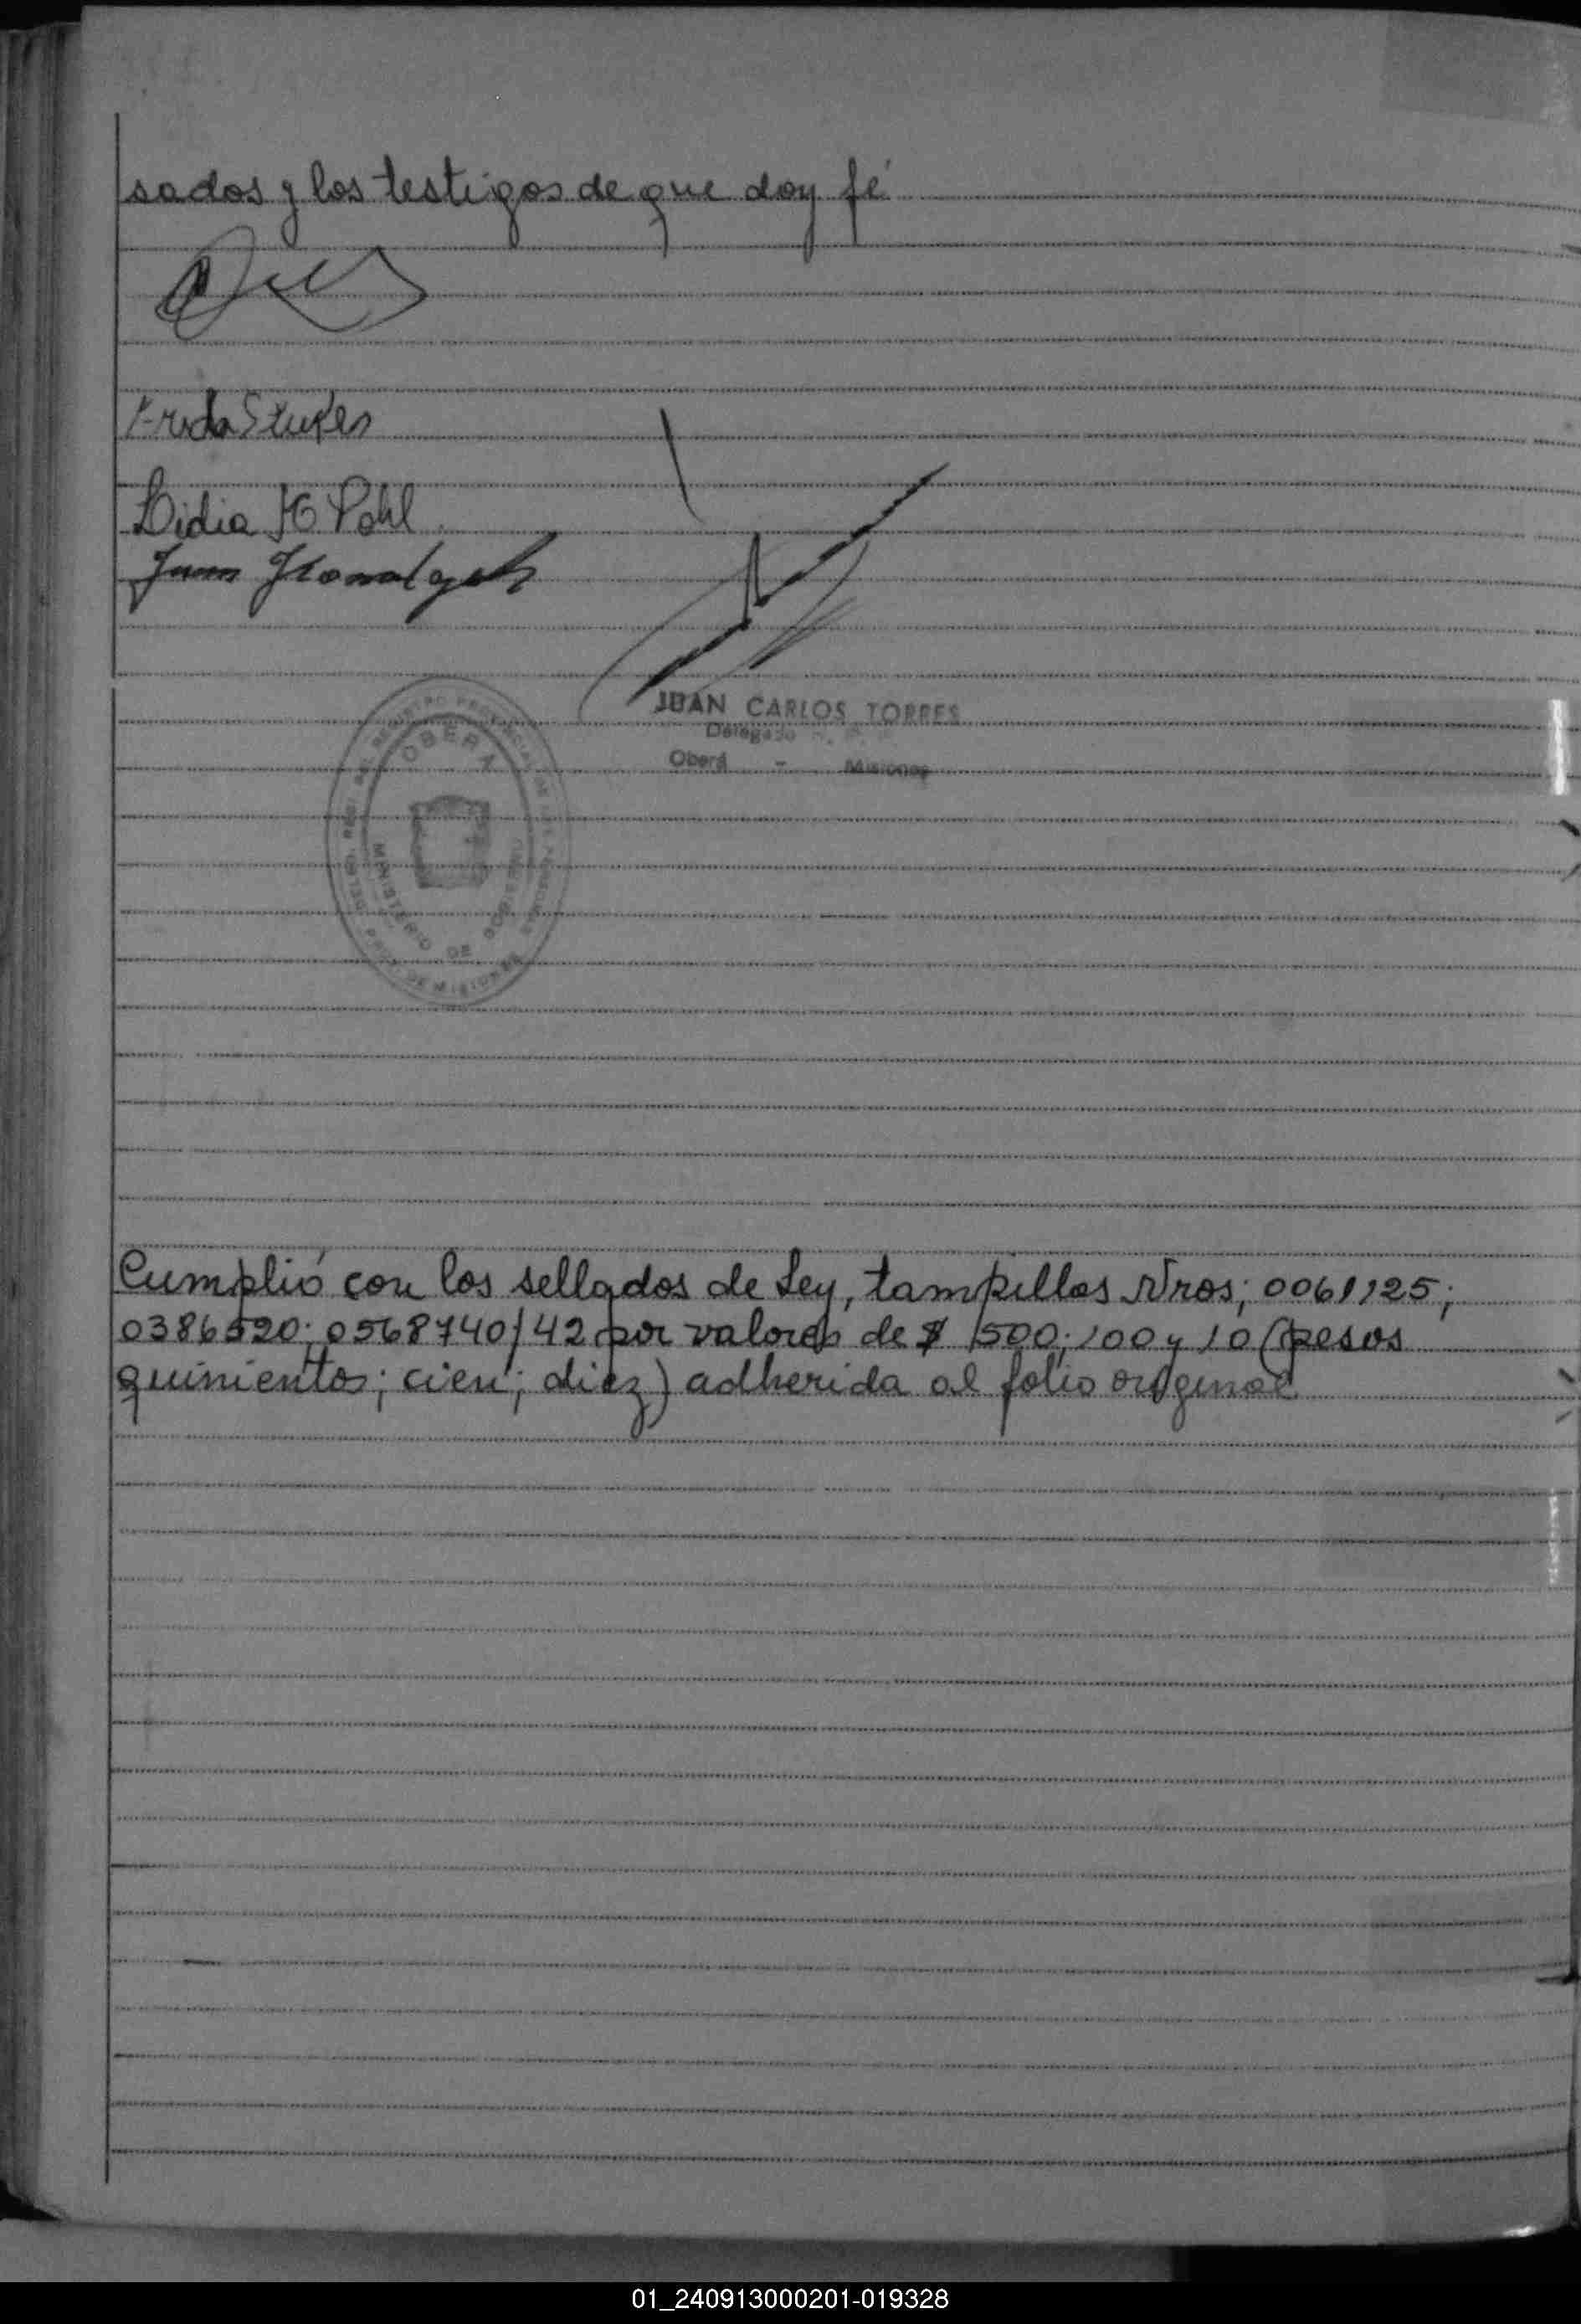 sados y los testigos de que doy fé
Frida
Lidia H Pohl
Juan
JUAN CARLOS TORRES
Delegado
Oberá - Misiones
OBERA
MINISTERIO DE GOB
PROV. DE MISIONES
Cumplió con los sellados de Ley, tampillas Nros; 0061125;
0386520; 0568740/42 por valores de $ 500; 100 y 10 (pesos
quinientos; cien; diez) adherida al folio original
01_240913000201-019328